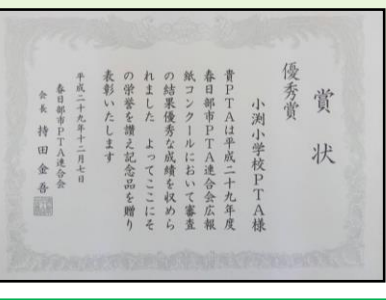 賞状
優秀賞
小渕小学校PTA様
貴PTAは平成二十九年度
春日部市PTA連合会広報
紙コンクールにおいて審査
の結果優秀な成績を収めら
れました よってここにそ
の栄誉を讃え記念品を贈り
表彰いたします
平成二十九年十二月七日
春日部市PTA連合会
会長 持田金吾